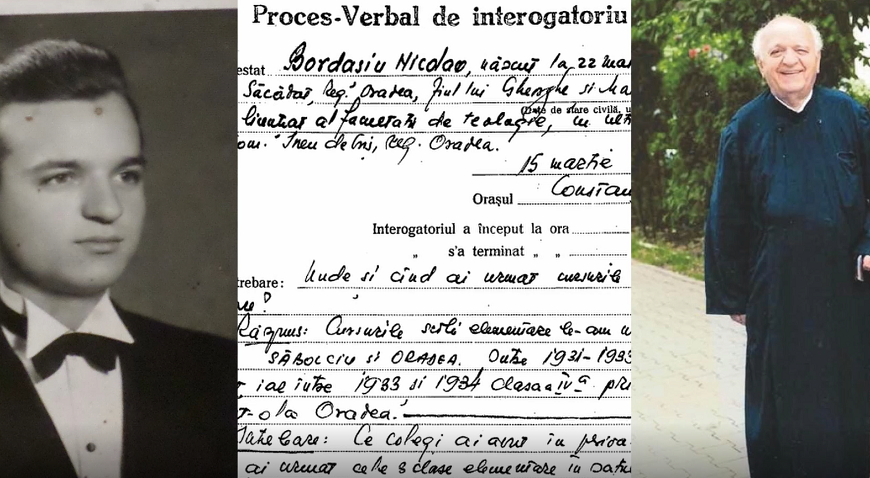 Proces-Verbal de interogatoriu
estat Bordașiu Nicolae, născut la 22 mar
Săcădat, Reg. Oradea, fiul lui Gheorghe și Ma
(Date de stare civilă, u
licențiat al facultății de teologie, în ult
com. Ineu de Criș, Reg. Oradea.
15 martie
Orașul Constan
Interogatoriul a început la ora
„ s'a terminat „ „
trebare: Unde si cînd ai urmat cursurile
re?
Răspuns: Cursurile școlii elementare le-am u
SĂBOLCIU și ORADEA. Între 1931-1933
iar între 1933 si 1934 clasa a IV a pri
la Oradea.
Întrebare: Ce colegi ai avut în
ai urmat cele 3 clase elementare în satu